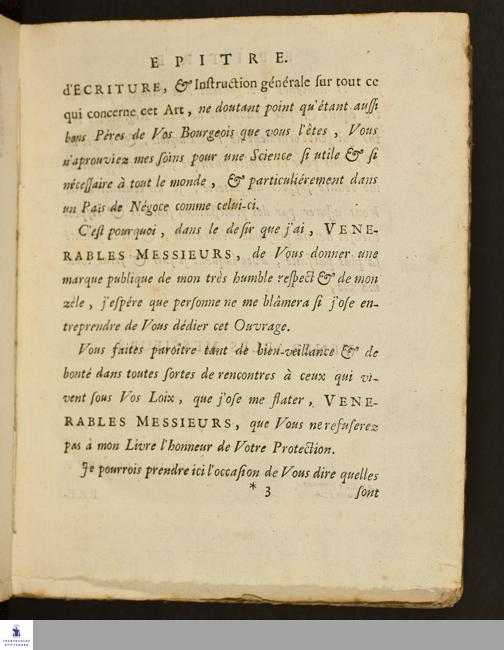 EPITRE.
d'ECRITURE, & Instruction générale sur tout ce
qui concerne cet Art, ne doutant point qu'étant aussi
bons Péres de Vos Bourgeois que vous l'êtes, Vous
n'aprouviez mes soins pour une Science si utile & si
nécessaire à tout le monde, & particuliérement dans
un Païs de Négoce comme celui-ci.
C'est pourquoi, dans le desir que j'ai, VENE-
RABLES MESSIEURS, de Vous donner une
marque publique de mon très humble respect & de mon
zèle, j'espére que personne ne me blâmera si j'ose en-
treprendre de Vous dédier cet Ouvrage.
Vous faites paroître tant de bien-veillance & de
bonté dans toutes sortes de rencontres à ceux qui vi-
vent sous Vos Loix, que j'ose me flater, VENE-
RABLES MESSIEURS, que Vous ne refuserez
pas à mon Livre l'honneur de Votre Protection.
Je pourrois prendre ici l'occasion de Vous dire quelles
* 3 sont